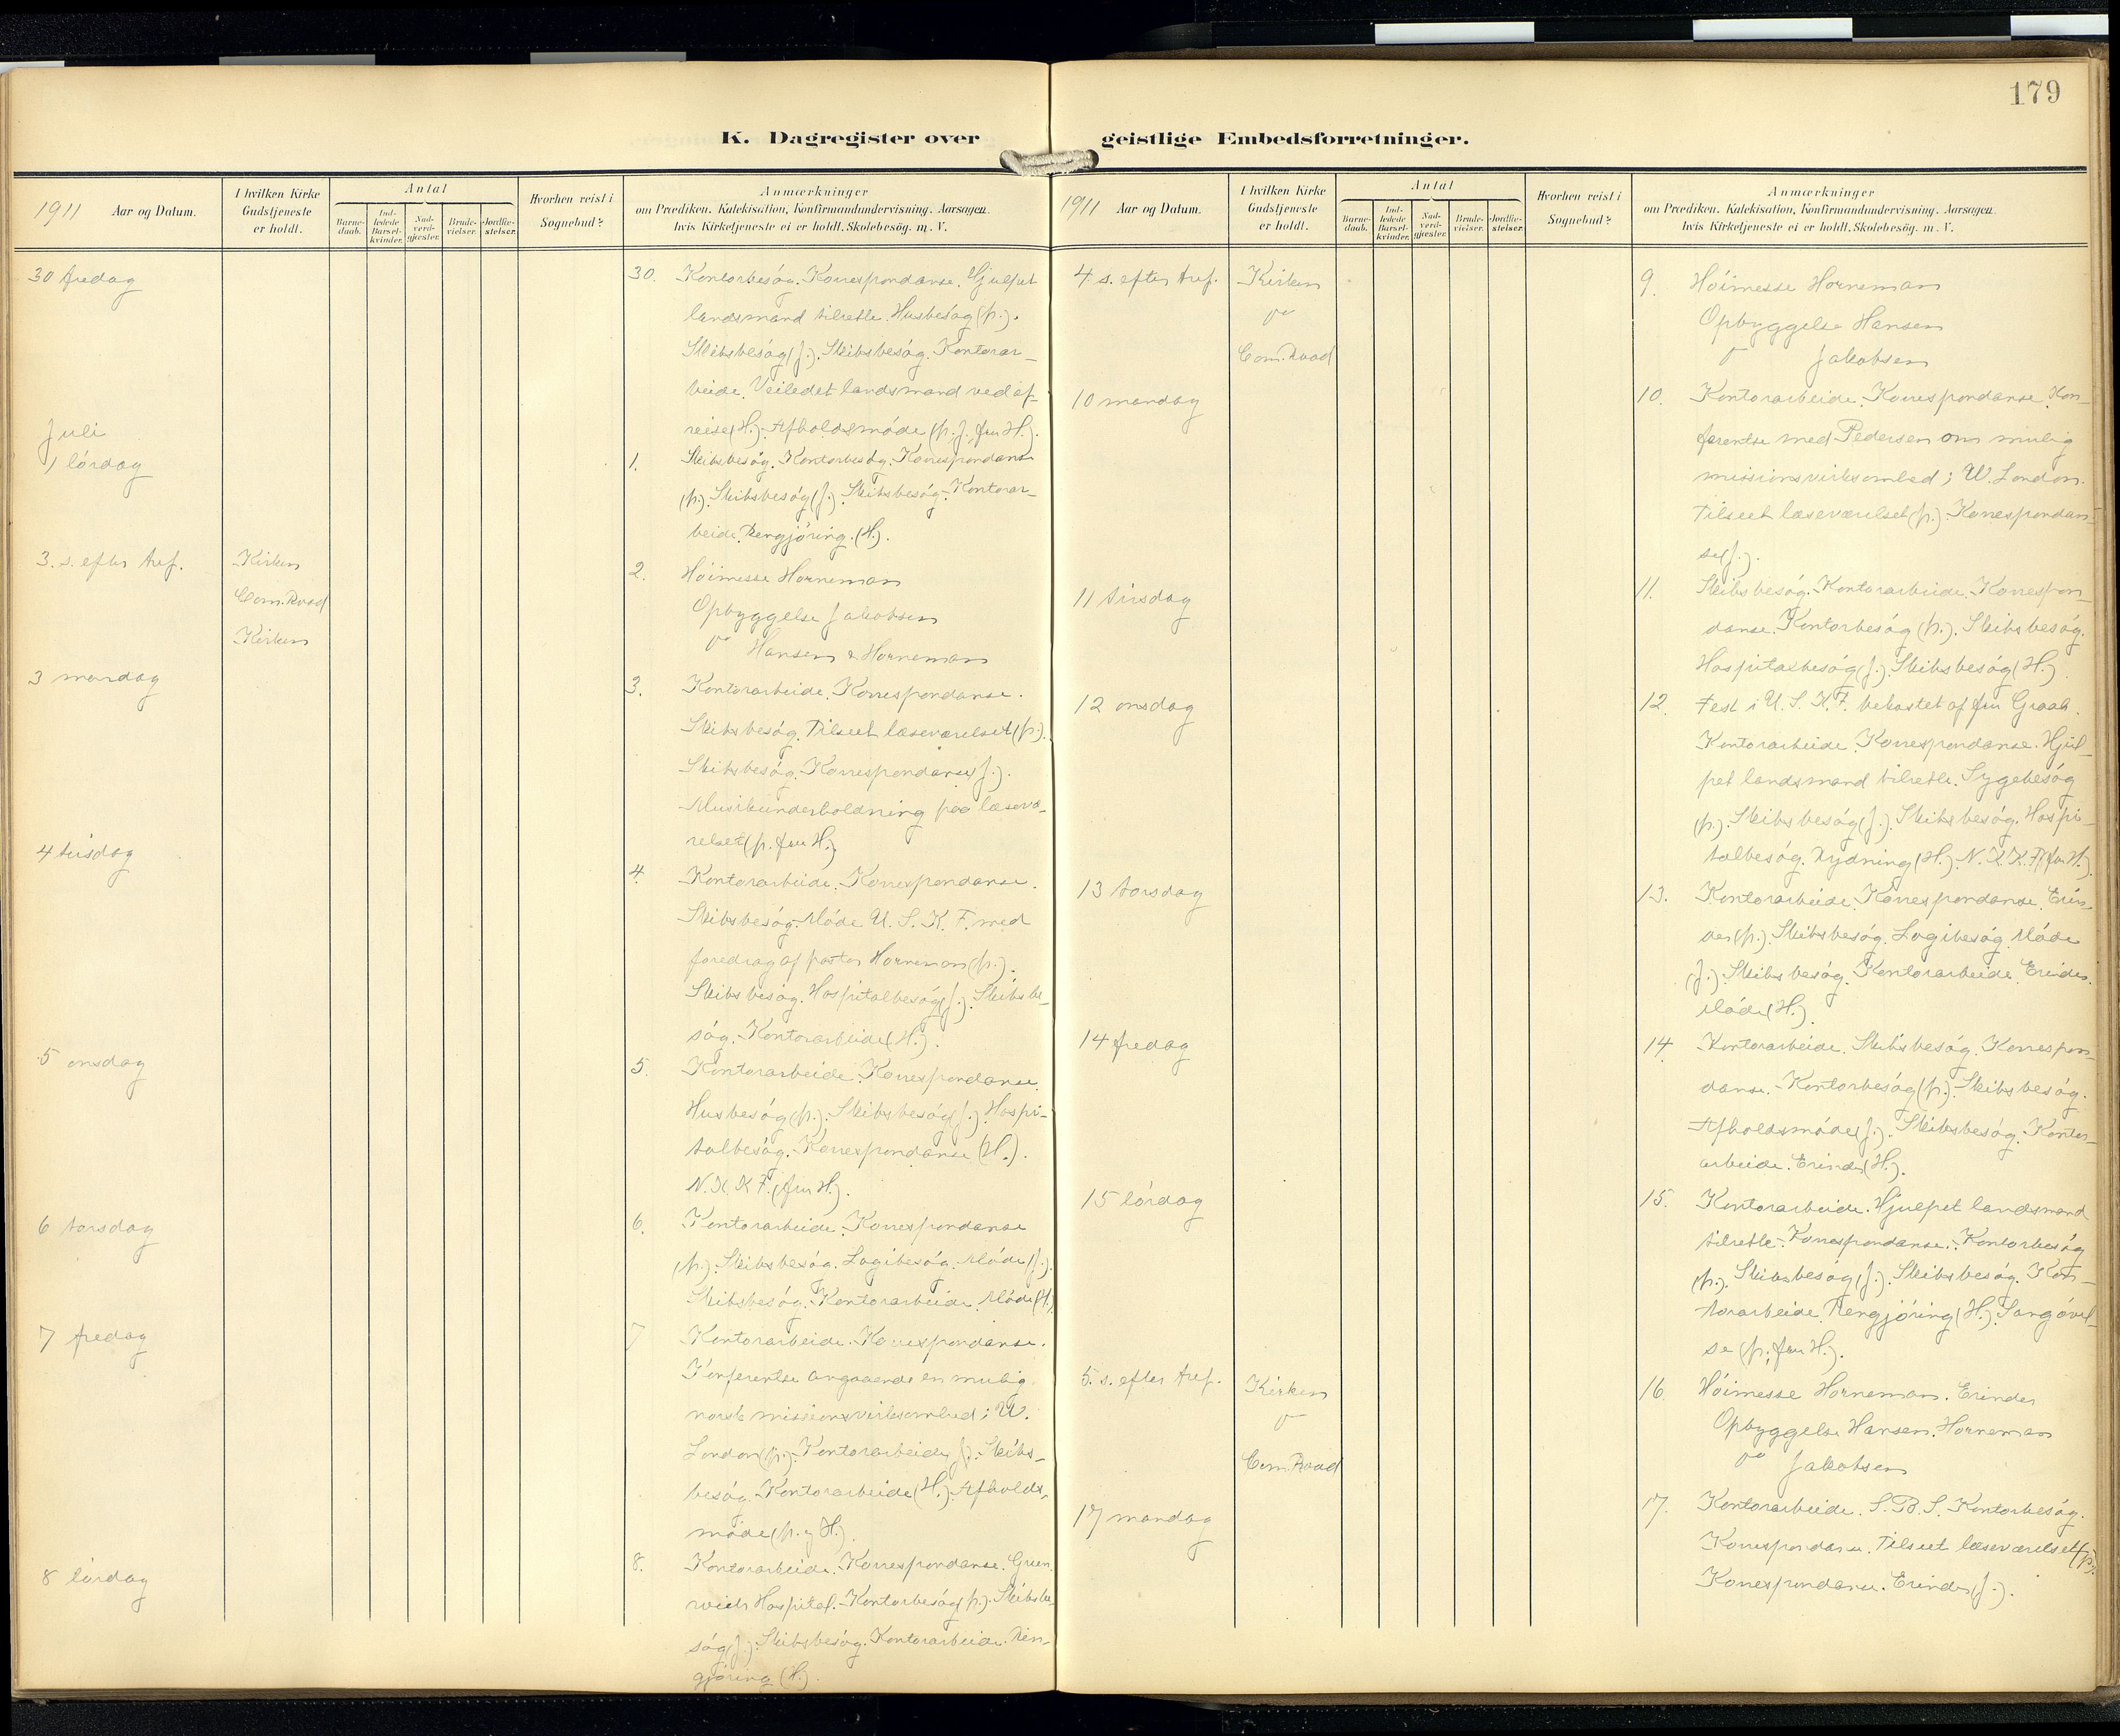 179
K. Dagregister over geistlige Embedsforretninger.
1911 Aar og Datum.
I hvilken Kirke Gudstjeneste er holdt.
Antal
Barnedaab.
Indledede Barselkvinder.
Nadverdgjæster.
Brudevielser.
Jordfæstelser.
Hvorhen reist i Sognebud?
Anmærkninger
om Prædiken, Katekisation, Konfirmandundervisning. Aarsagen,
hvis Kirketjeneste ei er holdt, Skolebesøg. m. V.
30 fredag
30. Kontorbesøg. Korrespondanse. Hjulpet
landsmænd tilrette. Husbesøg (p.).
Skibsbesøg (J.). Skibsbesøg. Kontorar-
beide. Veiledet landsmand ved af-
reise (H.). Afholdsmøde (p. J. fru H.).
Juli
1 lørdag
1. Skibsbesøg. Kontorbesøg. Korrespondanse
(p.). Skibsbesøg (J.). Skibsbesøg. Kontorar-
beide. Rengjøring. (H.).
3. s. efter tref. Kirken
2. Høimesse Horneman
Com. Road
Opbyggelse Jakobsen
Kirken
do Hansen & Horneman
3 mandag
3. Kontorarbeide. Korrespondanse.
Skibsbesøg. Tilseet læseværelset (p.).
Skibsbesøg. Korrespondanse (J.).
Musikunderholdning paa læsevæ-
relset (p. fru H.)
4 tirsdag
4. Kontorarbeide. Korrespondanse.
Skibsbesøg. Møde U. S. K. F. med
foredrag af pastor Horneman (p.).
Skibsbesøg. Hospitalbesøg (J.). Skibsbe-
søg. Kontorarbeide (H.).
5 onsdag
5. Kontorarbeide. Korrespondanse.
Husbesøg (p.). Skibsbesøg (J.). Hospi-
talbesøg. Korrespondanse (H.).
N. K. K. F. (fru H.).
6 torsdag
6. Kontorarbeide. Korrespondanse
(p.). Skibsbesøg. Logibesøg. Møde (J.).
Skibsbesøg. Kontorarbeide. Møde (H.)
7 fredag
7 Kontorarbeide. Korrespondanse.
Konferentse angaaende en mulig
norsk missionsvirksomhed i W.
London (p.). Kontorarbeide J. Skibs-
besøg. Kontorarbeide (H.). Afholds-
møde (p. & H.).
8 lørdag
8. Kontorarbeide. Korrespondanse. Green-
wich Hospital. Kontorbesøg (p.). Skibsbe-
søg (J.). Skibsbesøg. Kontorarbeide. Ren-
gjøring (H.).
1911 Aar og Datum.
I hvilken Kirke Gudstjeneste er holdt.
Antal
Barnedaab.
Indledede Barselkvinder.
Nadverdgjæster.
Brudevielser.
Jordfæstelser.
Hvorhen reist i Sognebud?
Anmærkninger
om Prædiken, Katekisation, Konfirmandundervisning. Aarsagen,
hvis Kirketjeneste ei er holdt, Skolebesøg. m. V.
4. s. efter tref. Kirken
9. Høimesse Horneman
do
Opbyggelse Hansen
Com. Road
do Jakobsen
10 mandag
10. Kontorarbeide. Korrespondanse. Kon-
ferentse med Pedersen om mulig
missionsvirksomhed i W. London.
Tilseet læseværelset (p.). Korrespondan-
se (J.).
11 tirsdag
11. Skibsbesøg. Kontorarbeide. Korrespon-
danse. Kontorbesøg (p.). Skibsbesøg.
Hospitalbesøg (J.). Skibsbesøg (H.)
12 onsdag
12. Fest i U. S. K. F. bekostet af fru Graah.
Kontorarbeide. Korrespondanse. Hjul-
pet landsmand tilrette. Sygebesøg
(p.). Skibsbesøg (J.). Skibsbesøg. Hospi-
talbesøg. Rydning (H.). N. K. K. F. (fru H.)
13 torsdag
13. Kontorarbeide. Korrespondanse. Erin-
der (p.). Skibsbesøg. Logibesøg. Møde
(J.). Skibsbesøg. Kontorarbeide. Erinder.
Møde (H.)
14 fredag
14 Kontorarbeide. Skibsbesøg. Korrespon-
danse. Kontorbesøg (p.). Skibsbesøg.
Afholdsmøde (J.). Skibsbesøg. Kontor-
arbeide. Erinder (H.).
15 lørdag
15. Kontorarbeide. Hjulpet landsmand
tilrette. Korrespondanse. Kontorbesøg
(p.). Skibsbesøg (J.). Skibsbesøg. Kon-
torarbeide. Rengjøring (H.). Sangøvel-
se (p. fru H.).
5. s. efter tref. Kirken
16. Høimesse Horneman. Erinder
do
Opbyggelse Hansen. Horneman
Com. Road
do Jakobsen
17 mandag
17. Kontorarbeide. S. B. S. Kontorbesøg.
Korrespondanse. Tilseet læseværelset (p.).
Korrespondanse. Erinder (J.).